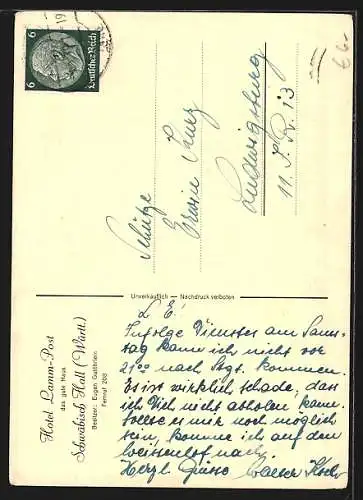 Hotel Lamm-Post
das gute Haus
Schwäbisch Hall (Württ.)
Besitzer: Eugen Gschtrein
Fernruf 268
Unverkäuflich — Nachdruck verboten
L. E!
Infolge Dienstes am Sams-
tag kann ich nicht vor
21⁰⁰ nach Stgt. kommen.
Es ist wirklich schade, dass
ich Dich nicht abholen kann.
Sollte es mir noch möglich
sein, komme ich auf den
nach.
Herzl. Grüsse
Deutsches Reich
6
6
Schütze
Erwin Kurz
Ludwigsburg
11. J. R. 13
66.-